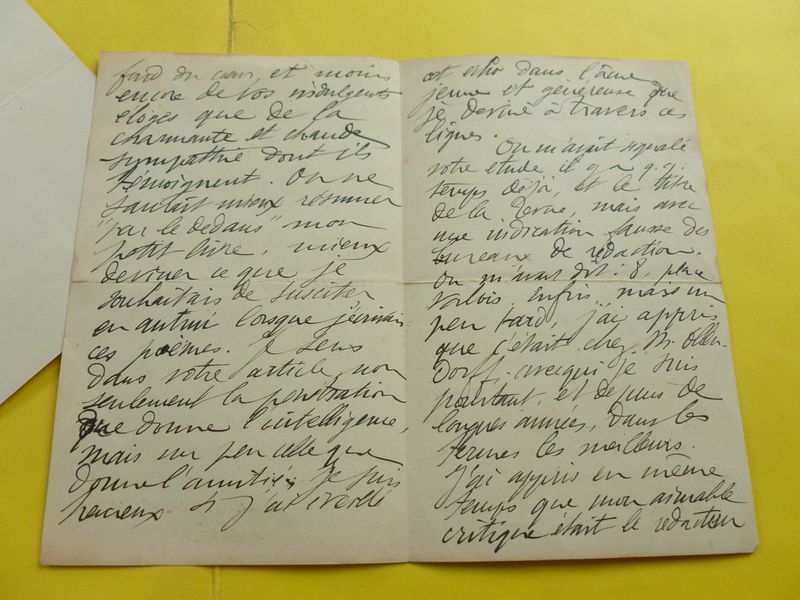 fond du cœur, et moins
encore de vos indulgents
éloges que de la
charmante et chaude
sympathie dont ils
témoignent. On ne
saurait mieux résumer
"par le dedans" mon
petit livre, mieux
deviner ce que je
souhaitais de susciter
en autrui lorsque j'écrivais
ces poèmes. Je sens
dans votre article non
seulement la pénétration
que donne l'intelligence,
mais un peu celle que
donne l'amitié. Je suis
heureux si j'ai éveillé
cet écho dans l'âme
jeune et généreuse que
je devine à travers ces
lignes.
On m'avait signalé
votre étude, il y a q.q.
temps déjà, et le titre
de la Revue, mais avec
une indication fausse des
bureaux de rédaction.
On m'avait dit : 8, place
Valois. Enfin, mais un
peu tard, j'ai appris
que c'était chez M. Ollen-
dorff, avec qui je suis
pourtant, et depuis de
longues années, dans les
termes les meilleurs.
J'ai appris en même
temps que mon aimable
critique était le rédacteur